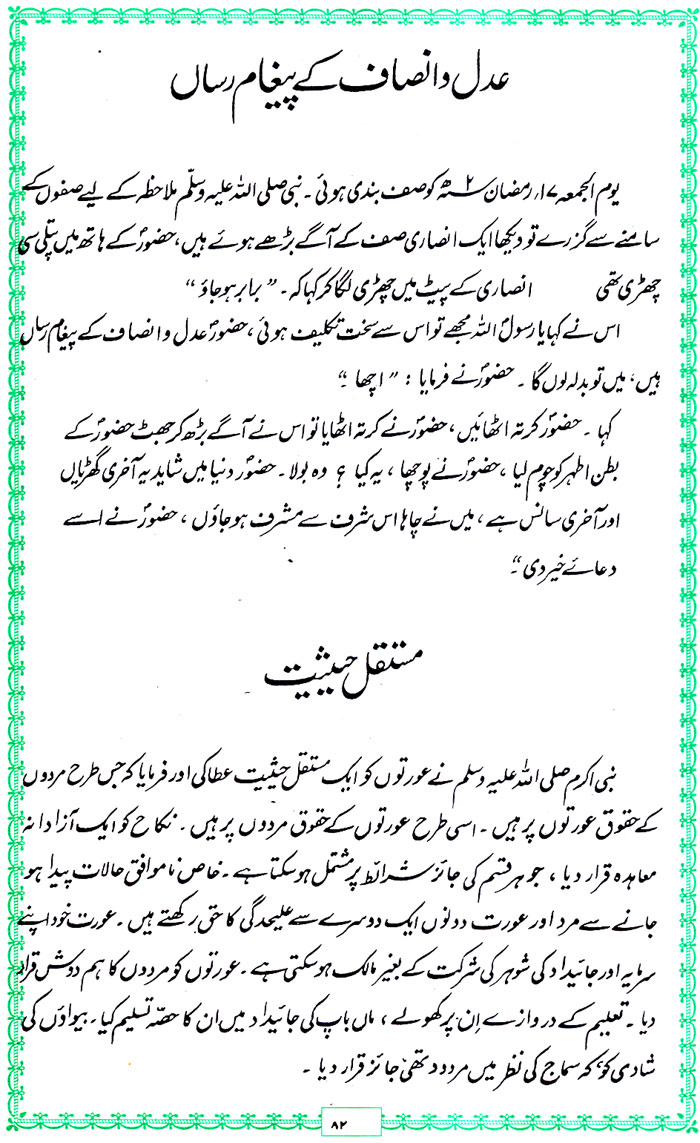 عدل و انصاف کے پیغام رساں
یوم الجمعہ ۱۷؍ رمضان ۲ سنہ ھ کو صف بندی ہوئی۔ نبی صلی اللہ علیہ وسلّم ملاحظہ کے لیے صفوں کے
سامنے سے گزرے تو دیکھا ایک انصاری صف کے آگے بڑھے ہوئے ہیں، حضورؐ کے ہاتھ میں پتلی سی
چھڑی تھی انصاری کے پیٹ میں چھڑی لگا کر کہا کہ۔ "برابر ہو جاؤ"
اس نے کہا یا رسولؐ اللہ مجھے تو اس سے سخت تکلیف ہوئی، حضورؐ عدل و انصاف کے پیغام رساں
ہیں، میں تو بدلہ لوں گا۔ حضورؐ نے فرمایا : "اچھا۔"
کہا۔ حضورؐ کرتہ اٹھائیں، حضورؐ نے کرتہ اٹھایا تو اس نے آگے بڑھ کر جھٹ حضورؐ کے
بطن اطہر کو چوم لیا، حضورؐ نے پوچھا، یہ کیا ؟ وہ بولا۔ حضورؐ دنیا میں شاید یہ آخری گھڑیاں
اور آخری سانس ہے، میں نے چاہا اس شرف سے مشرف ہو جاؤں، حضورؐ نے اسے
دعائے خیر دی۔"
مستقل حیثیت
نبی اکرم صلی اللہ علیہ وسلم نے عورتوں کو ایک مستقل حیثیت عطا کی اور فرمایا کہ جس طرح مردوں
کے حقوق عورتوں پر ہیں۔ اسی طرح عورتوں کے حقوق مردوں پر ہیں۔ نکاح کو ایک آزادانہ
معاہدہ قرار دیا، جو ہر قسم کی جائز شرائط پر مشتمل ہو سکتا ہے۔ خاص ناموافق حالات پیدا ہو
جانے سے مرد اور عورت دونوں ایک دوسرے سے علیحدگی کا حق رکھتے ہیں۔ عورت خود اپنے
سرمایہ اور جائیداد کی شوہر کی شرکت کے بغیر مالک ہو سکتی ہے۔ عورتوں کو مردوں کا ہم دوش قرار
دیا۔ تعلیم کے دروازے اِن پر کھولے، ماں باپ کی جائیداد میں ان کا حصّہ تسلیم کیا۔ بیواؤں کی
شادی کو، کہ سماج کی نظر میں مردود تھی، جائز قرار دیا۔
۸۲